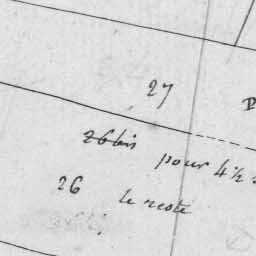 27
26 bis pour 4 1/2
26 le reste